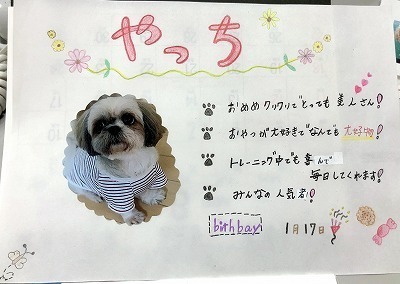 やっち
おめめクリクリでとっても美人さん!
おやつが大好きでなんでも大好物!
トレーニング中でも喜んで
毎日してくれます!
みんなの人気者!
birthbay 1月17日